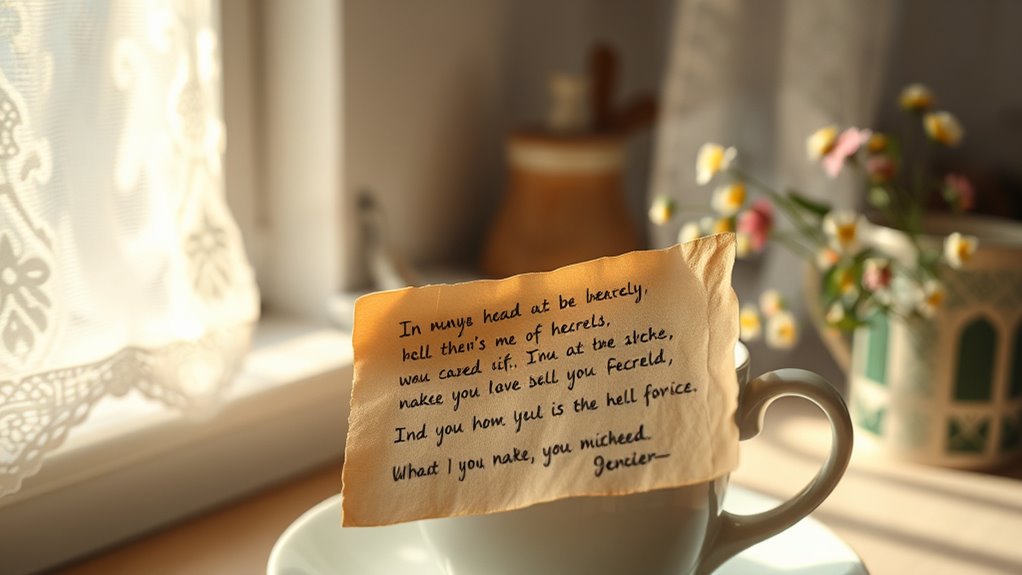 In nunys head at be beretely,
hell then's me of hecrels,
wou cared sif.. Inu at tne stche,
nakee you lave bell you Fecreld,
Ind you how yeul is the hell forice.
Whadt I you nake, you micheed.
Jencier—